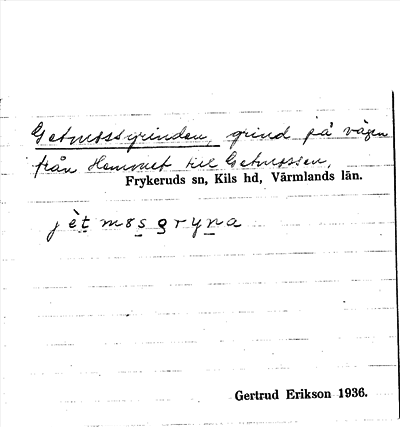 Getmossgrinden, grind på vägen
från Hemmet till Getmossen,
Frykeruds sn, Kils hd, Värmlands län.
jètmosgryna
Gertrud Erikson 1936.